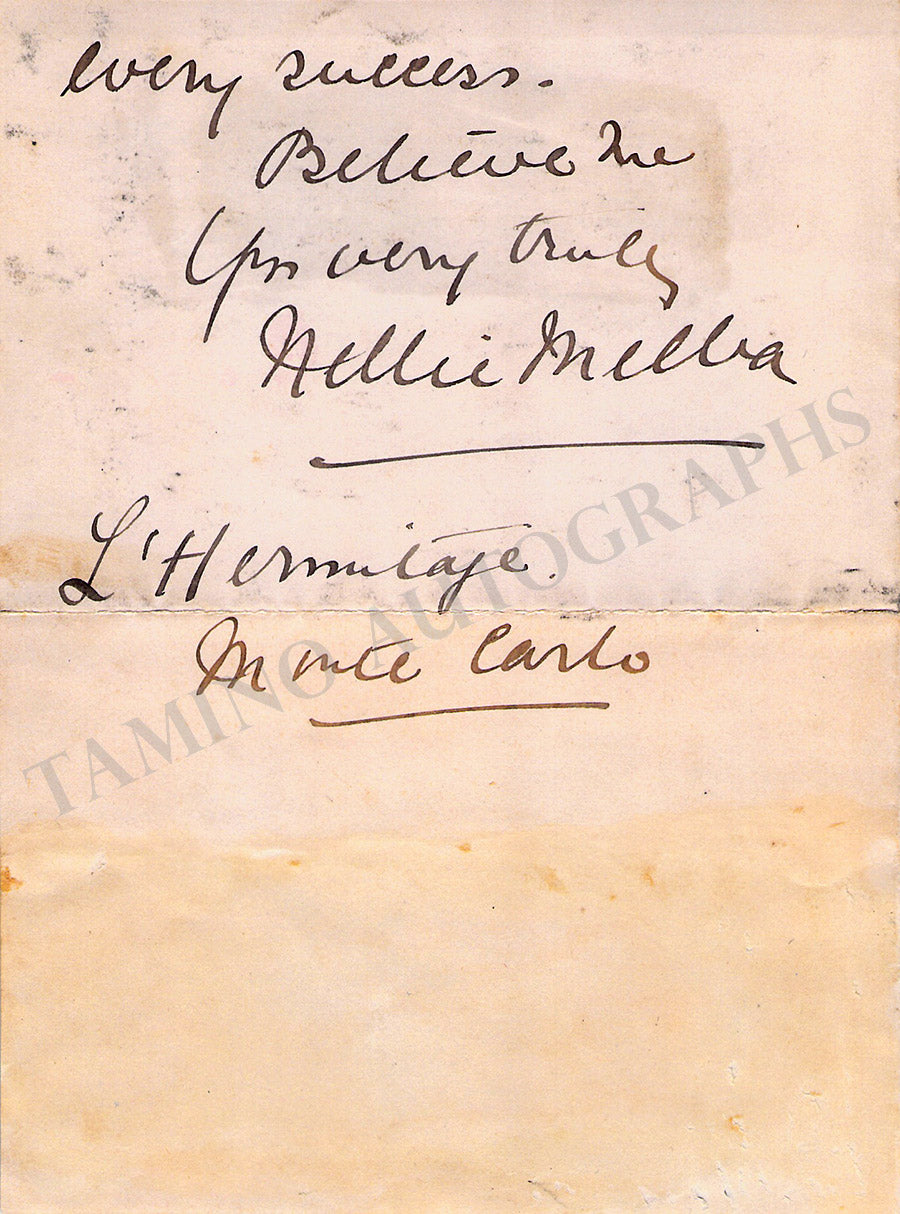 every success.
Believe me
Yrs very truly
Nellie Melba
L'Hermitage.
Monte Carlo
TAMINO AUTOGRAPHS